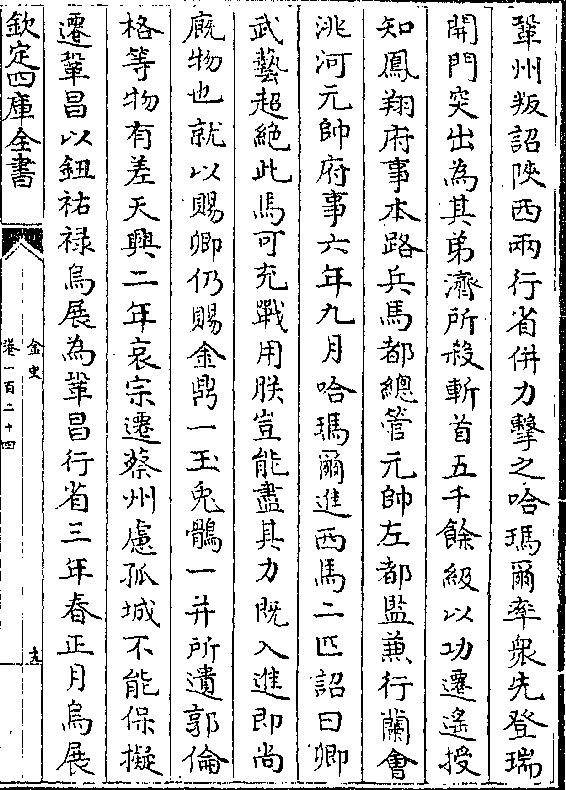 鞏州叛詔陜西兩行省併力擊之哈瑪爾率衆先登瑞
開門突出為其弟濟所殺斬首五千餘級以功遷遙授
知鳳翔府事本路兵馬都總管元帥左都監兼行蘭會
洮河元帥府事六年九月哈瑪爾進西馬二匹詔曰卿
武藝超絶此馬可充戰用朕豈能盡其力既入進即尚
廐物也就以賜卿仍賜金鼎一玉兎鶻一并所遺郭倫
格等物有差天興二年哀宗遷蔡州慮孤城不能保擬
遷鞏昌以鈕祜禄烏展為鞏昌行省三年春正月烏展
欽定四庫全書
金史
卷一百二十四